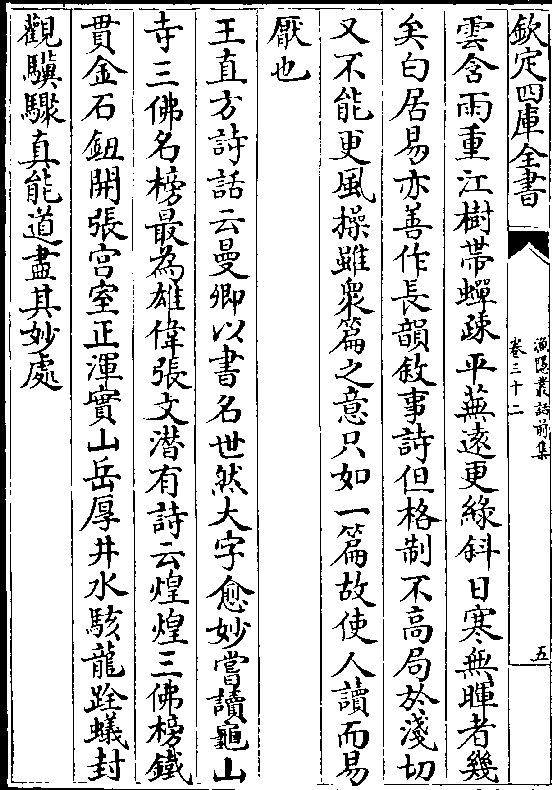 欽定四庫全書
漁隱叢話前集
卷三十二
五
雲含雨重江樹帶蟬疎平蕪遠更緑斜日寒無暉者幾
矣白居易亦善作長韻敘事詩但格制不高局於淺切
又不能更風操雖衆篇之意只如一篇故使人讀而易
厭也
王直方詩話云曼卿以書名世然大字愈妙嘗讀龜山
寺三佛名榜最為雄偉張文潛有詩云煌煌三佛榜鐵
貫金石鈕開張宫室正渾實山岳厚井水駭龍跧蟻封
觀驥驟真能道盡其妙處